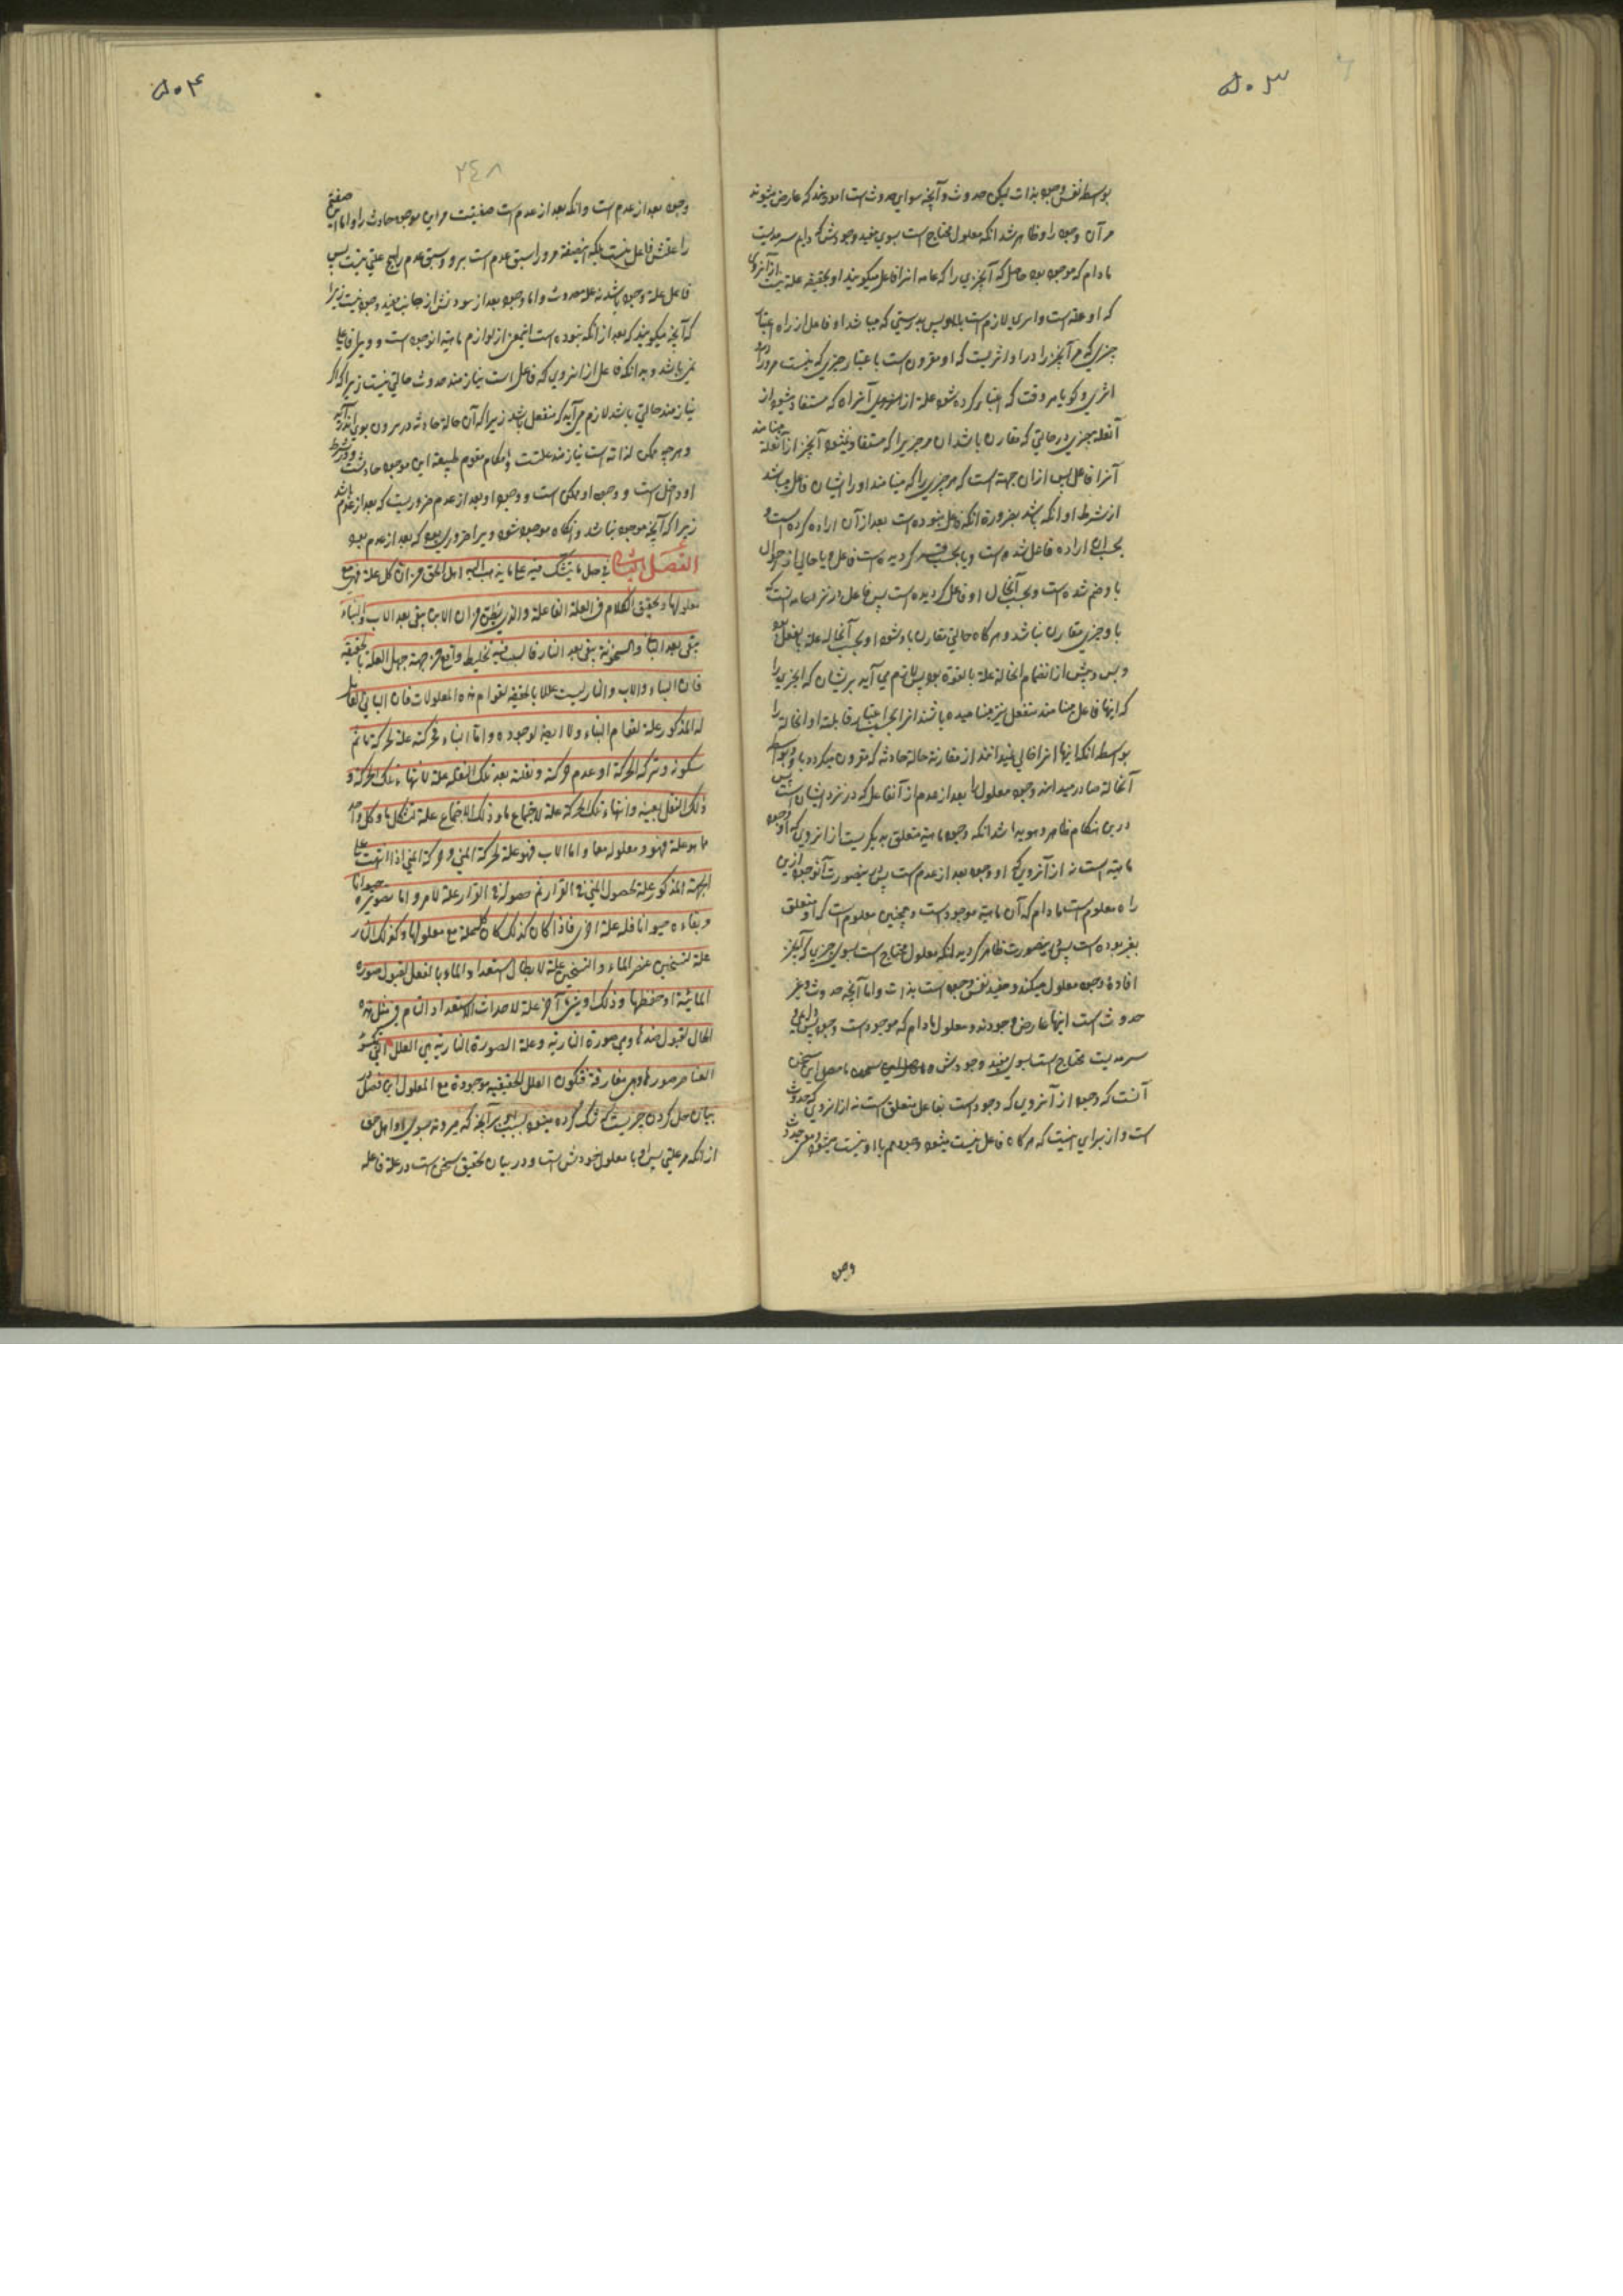 ۵۰۳
بوسطه نفس وجود بذات لیکن حدوث و آنچه سوای حدوث است امورند که عارض میشوند
مر آن وجود را و ظاهر شد انکه معلول محتاج است بسوی مفید وجودش دایم سرمدیت
مادام که موجود بود حاصل که آنچیزی را که عامه انرا فاعل میگویند او بحقیقه علة نیست از آنروی
که او علة است و امری لازم است بلکه پس بدرستی که میباشد او فاعل از راه اعتبار
چیزی که مر آنچیز را در او اثریست که او مقرون است باعتبار چیزی که نیست مرورا در
اثری و گویا هر وقت که اعتبار کرده شود علة از آنراه که مستفاد میشود از
آنعلة چیزی در حالتی که مقارن باشد ان مر چیزیرا که مستفاد نمیشود آنچیز از آنعلة مینامند
آنرا فاعل پس ازان جهت است که هر چیزی را که مینامند او را ایشان فاعل میباشد
از شرط او انکه باشد بضرورة انکه فاعل نبوده است بعد از آن اراده کرده است و
بحسب اراده فاعل شده است و یا بحسب قسر گردیده است فاعل و یا حالی از احوال
با او ضم شده است و بحسب آنحال او فاعل گردیده است پس فاعل در نزد عامه انست که
با او چیزی مقارن نباشد و هرگاه حالتی مقارن با او شود او بحسب آنحاله علة بالفعل بود
و پس و پیش از انضمام انحالة علة بالقوة بود پس لازم می آید بر ایشان که انچیزی را
که اینها فاعل مینامند منفعل نیز مینامیده باشند انرا بحسب اعتبار مقابلة او انحالة را
بوسطه انکه اینها انرا خالی نمیدانند از مقارنة حالة حادثه که مقرون میگردد با او و بواسطه
آنحالة صادر میدانند وجود معلول را بعد از عدم از آنفاعل که در نزد ایشان است پس
درین هنگام ظاهر و هویدا شد انکه وجود ماهیة متعلق بدیگریست از انروی که او وجود
ماهیة است نه از آنروی که او وجود بعد از عدم است پس درینصورت آنوجود ازین
راه معلوم است مادام که آن ماهیة موجود است و همچنین معلوم است که او متعلق
بغیر بوده است پس درینصورت ظاهر گردید انکه معلول محتاج است بسوی چیزی که آنچیز
افادهٔ وجود معلول میکند و مفید نفس وجود است بذات و اما آنچه حدوث و غیر
حدوث است اینها عارض وجودند و معلول مادام که موجود است وجودش دایمی
سرمدیت محتاج است بسوی مفید وجودش ماحصل این سخن
آنست که وجود از آنروی که وجود است بفاعل متعلق است نه از انروی که حدوث
است و از برای اینست که هرگاه فاعل نیست میشود وجود هم با او نیست میشود و معنی حدوث
وجود
۵۰۴
۲۴۸
وجود بعد از عدم است و انکه بعد از عدم است صفتیست مر این موجود حادث را و اما این صفة
را علتش فاعل نیست بلکه اینصفة مر ورا سبق عدم است برو و سبق عدم را هیچ علتی نیست پس
فاعل علة وجود باشد نه علة حدوث و اما وجود بعد از نبودنش از جانب مفید وجود نیست زیرا
که آنچه میگویند که بعد از انکه نبوده است اینمعنی از لوازم ماهیة انوجود است و ویرا فاعلی
نمیباشد و بدانکه فاعل از انروی که فاعل است نیازمند حدوث حالتی نیست زیرا که اگر
نیازمند حالتی باشد لازم می آید که منفعل باشد زیرا که آن حالة حادثه در بیرون بوی اندر آید
و هر چه ممکن لذاته است نیازمند علتست و امکان مقوم طبیعة این موجود حادث است و در شرط
او داخل است و وجود او ممکن است و وجود او بعد از عدم ضروریست که بعد از عدم باشد
زیرا که آنچه موجود نباشد و انگاه موجود شود ویرا ضروری بود که بعد از عدم بود
الفصل الثانی فی حل ما یتشکک فیه علی ما یذهب الیه اهل الحق من ان کل علة فهی مع
معلولها و تحقیق الکلام فی العلة الفاعلة والذی یظن من ان الابن یبقی بعد الاب والبناء
یبقی بعد البناء والسخونة یبقی بعد النار فالسبب فیه تخلیط واقع من جهة جهل العلة بالحقیقه
فان البناء والاب والنار لیست عللا بالحقیقه لقوام هذه المعلولات فان البانی العامل
له المذکور علة لقوام البناء ولا ایضا لوجوده و اما البناء فحرکته علة لحرکة ما ثم
سکونه و ترکه الحرکة او عدم حرکته و نقله بعد تلک النقله علة لانتهاء تلک الحرکة و
ذلک النقل بعینه و انتهاء تلک الحرکة علة لاجتماع ما و ذلک الاجتماع علة لتشکل ما و کل واحد
مما هو علة فهو و معلوله معا و اما الاب فهو علة لحرکة المنی و حرکة المنی اذا انتهت علی
الجهة المذکوره علة لحصول المنی فی القرار ثم حصوله فی القرار علة لامر و اما تصویره حیوانا
و بقاءه حیوانا فله علة اخری فاذا کان کذلک کان کل علة مع معلولها و کذلک النار
علة لتسخین عنصر الماء و التسخین علة لابطال استعداد الماء بالفعل لقبول صورة
المائیة او حفظها و ذلک او شیء آخر علة لاحداث الاستعداد التام فی مثل هذه
الحال لقبول ضدها و هی صورة الناریه و علة الصورة الناریه هی العلل التی تکسو
العناصر صورها و هی مفارقة فتکون العلل الحقیقیه موجودة مع المعلول این فصل در
بیان حل کردن چیزیست که شک کرده میشود بسبب او بر آنچه که میروند بسوی او اهل حق
از انکه هر علتی پس او با معلول خودش است و در بیان تحقیق سخن است در علة فاعله